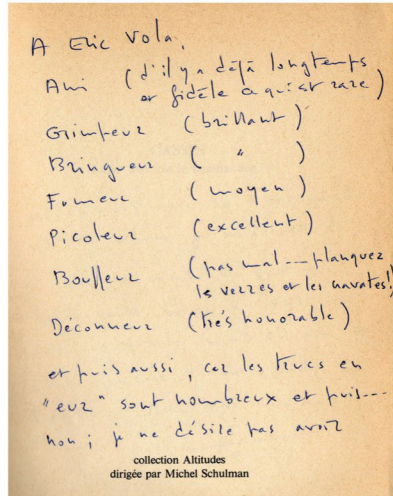 A Eric Vola,
Ami (d'il y a déjà longtemps
et fidèle ce qui est rare)
Grimpeur (brillant)
Bringueur ( " )
Fumeur (moyen)
Picoleur (excellent)
Bouffeur (pas mal --- planquez
les verres et les navates!)
Déconneur (très honorable)
et puis aussi, car les trucs en
"eur" sont nombreux et puis---
non ; je ne désire pas avoir
collection Altitudes
dirigée par Michel Schulman